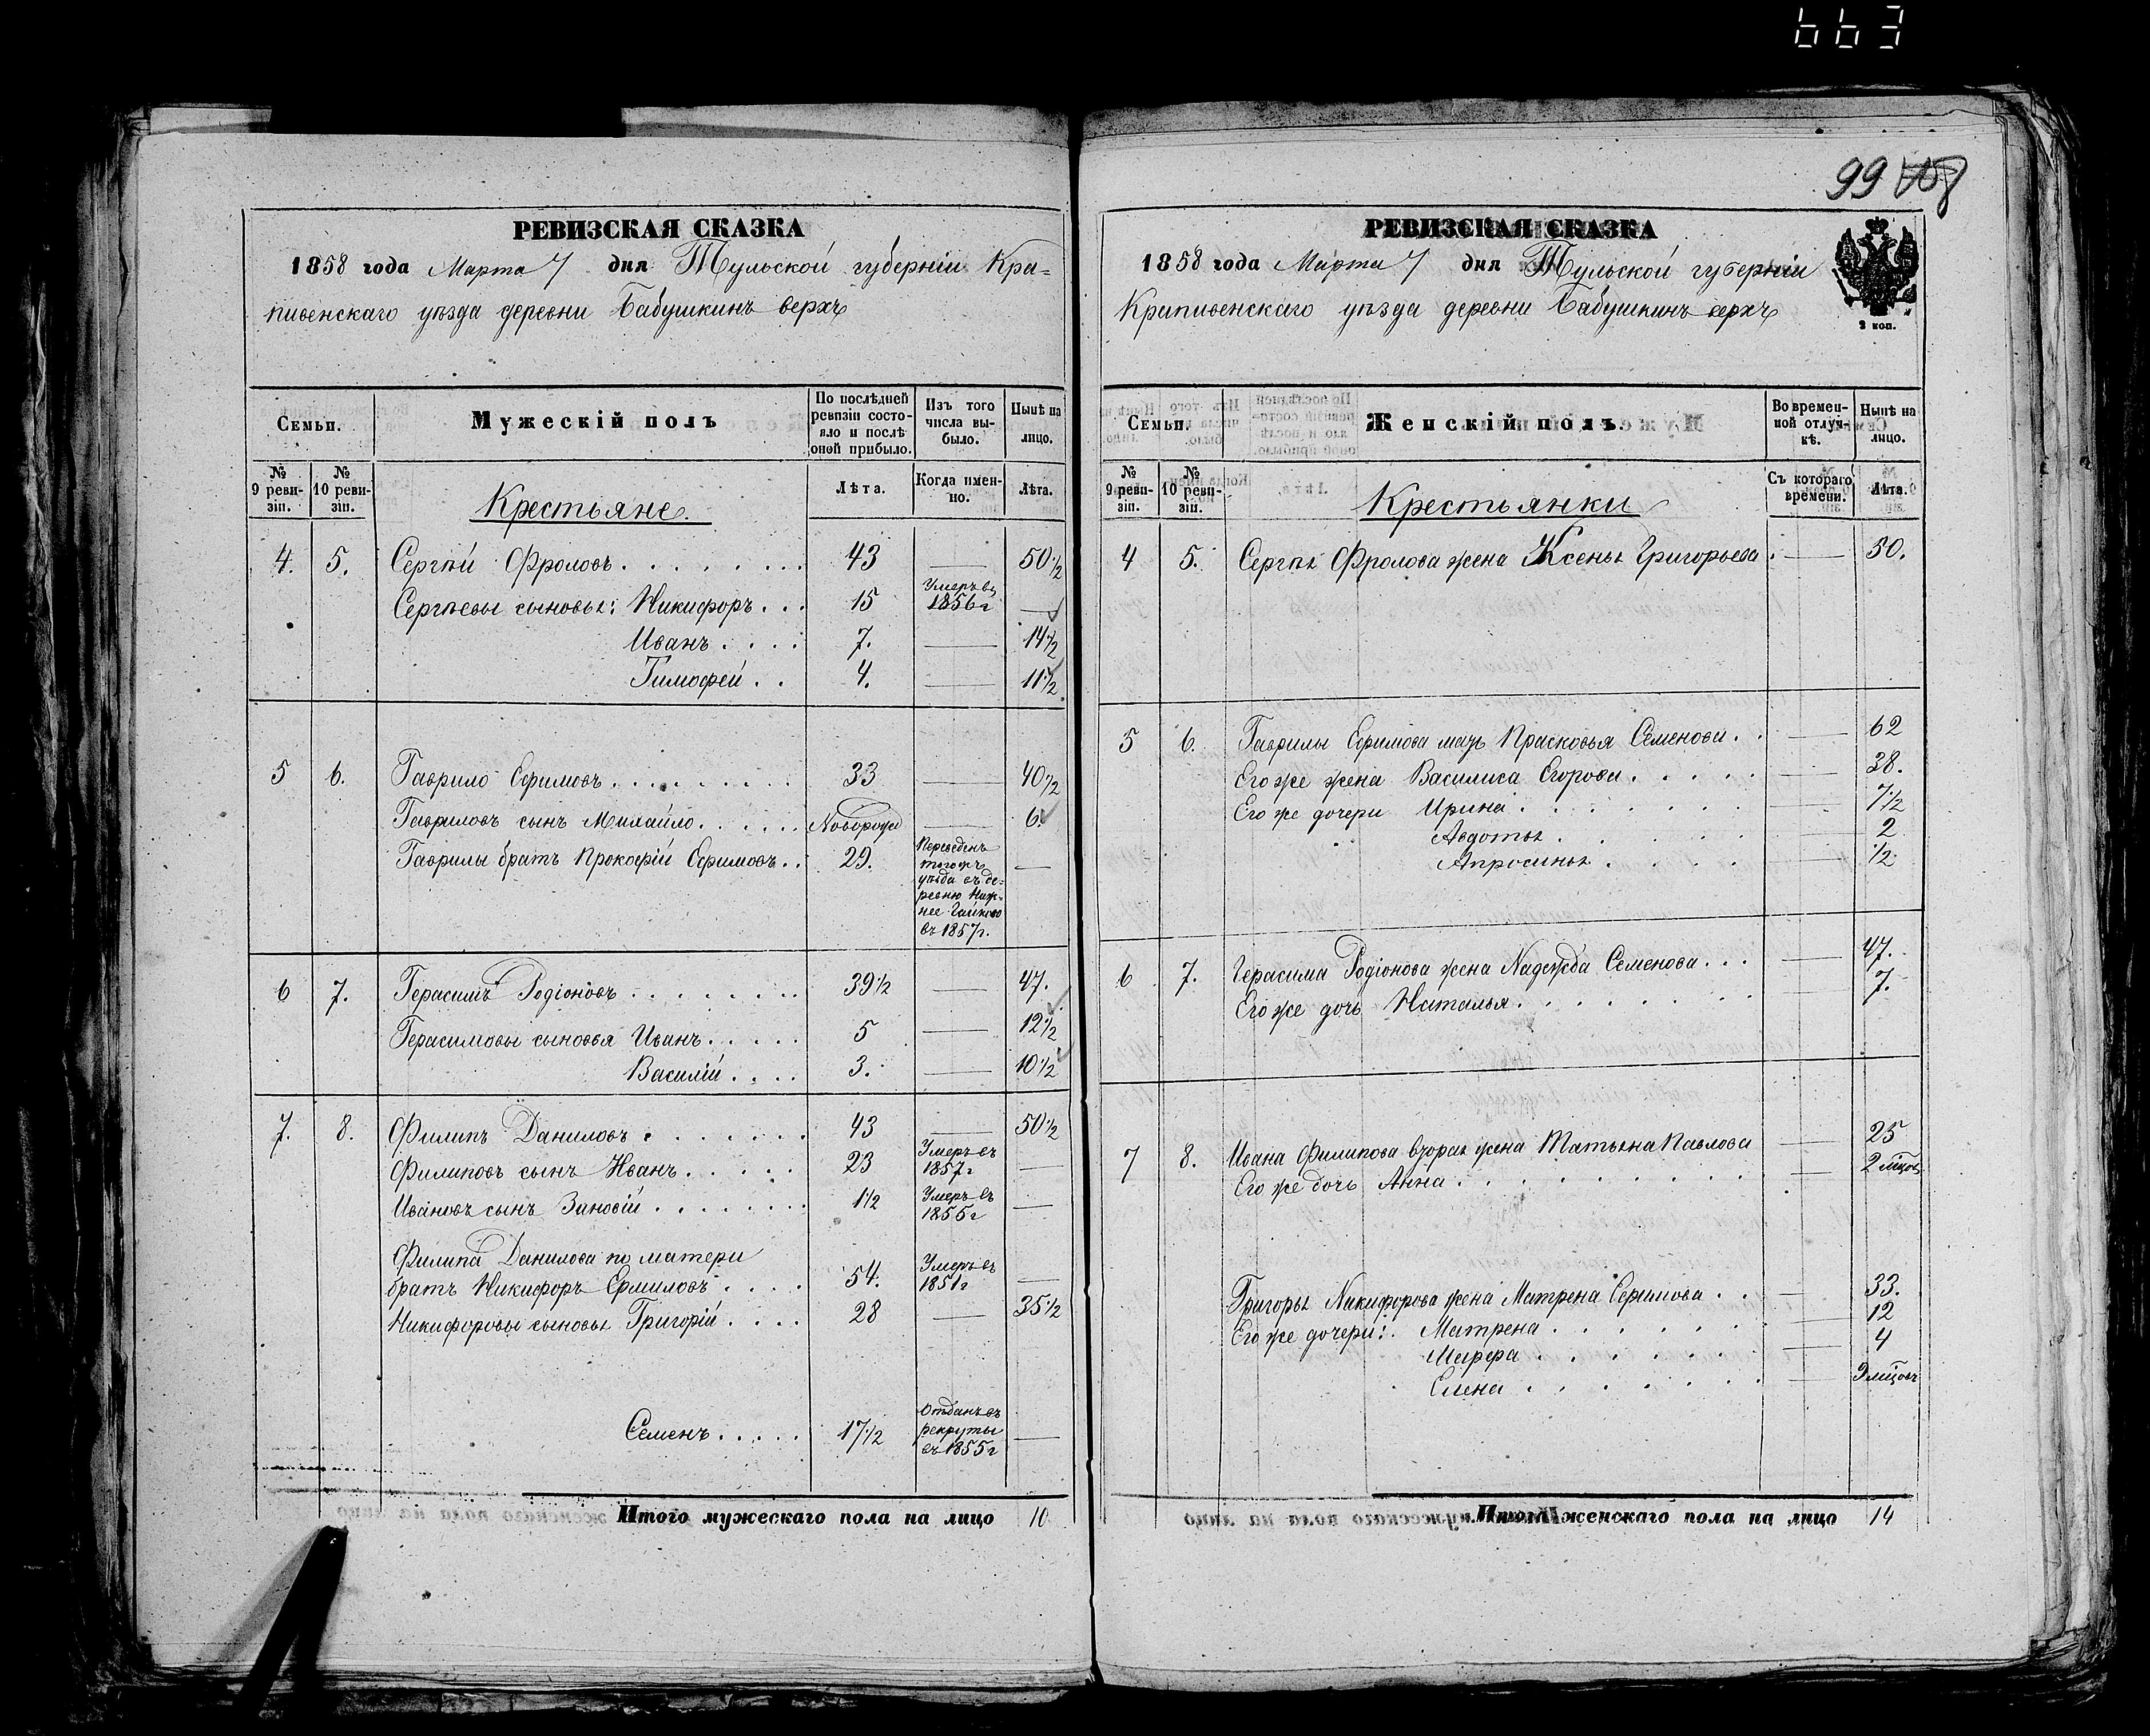 663
99 108
РЕВИЗСКАЯ СКАЗКА
1858 года Марта 7 дня Тульской губерніи Кра=
пивенскаго уѣзда деревни Бабушкинъ верхъ
Семьи. Мужескій полъ По послѣдней ревизіи состояло и послѣ оной прибыло. Изъ того числа выбыло. Нынѣ на лицо.
№ 9 ревизіи. № 10 ревизіи. Крестьяне. Лѣта. Когда именно. Лѣта.
4. 5. Сергѣй Фроловъ 43 — 50½
Сергѣевы сыновья: Никифоръ 15 Умеръ въ 1856 г —
Иванъ 7. — 14½
Тимофей 4. — 11½
5 6. Гаврило Ефимовъ 33 — 40½
Гавриловъ сынъ Михайло Новорожд — 6.
Гаврилы братъ Прокофій Ефимовъ 29. Переведенъ тогожъ уѣзда въ деревню Нижнее въ 1857 г. —
6 7. Герасимъ Родіоновъ 39½ — 47.
Герасимовы сыновья Иванъ 5 — 12½
Василій 3. — 10½
7. 8. Филипъ Даниловъ 43 — 50½
Филиповъ сынъ Иванъ 23 Умеръ въ 1857 г —
Ивановъ сынъ Зиновій 1½ Умеръ въ 1855 г —
Филипа Данилова по матери
братъ Никифоръ Ермиловъ 54. Умеръ въ 1851 г —
Никифоровы сыновья Григорій 28 — 35½
Семенъ 17½ Отданъ въ рекруты въ 1855 г —
Итого мужескаго пола на лицо 10
РЕВИЗСКАЯ СКАЗКА
1858 года Марта 7 дня Тульской губерніи
Крапивенскаго уѣзда деревни Бабушкинъ верхъ
2 коп.
Семьи. Женскій полъ. Во временной отлучкѣ. Нынѣ на лицо.
№ 9 ревизіи. № 10 ревизіи. Крестьянки Съ котораго времени. Лѣта.
4 5. Сергѣя Фролова жена Ксенья Григорьева — 50.
5 6. Гаврилы Ефимова мать Прасковья Семенова — 62
Его же жена Василиса Егорова — 38.
Его же дочери Ирина — 7½
Авдотья — 2
Апросинья — ½
6 7. Герасима Родіонова жена Надежда Семенова — 47.
Его же дочь Наталья — 7.
7 8. Ивана Филипова вторая жена Татьяна Павлова — 25
Его же дочь Анна — 2 мѣцовъ
Григорья Никифорова жена Матрена — 33.
Его же дочери: Матрена — 12
Марфа — 4
Елена — 9 мѣцовъ
Итого женскаго пола на лицо 14